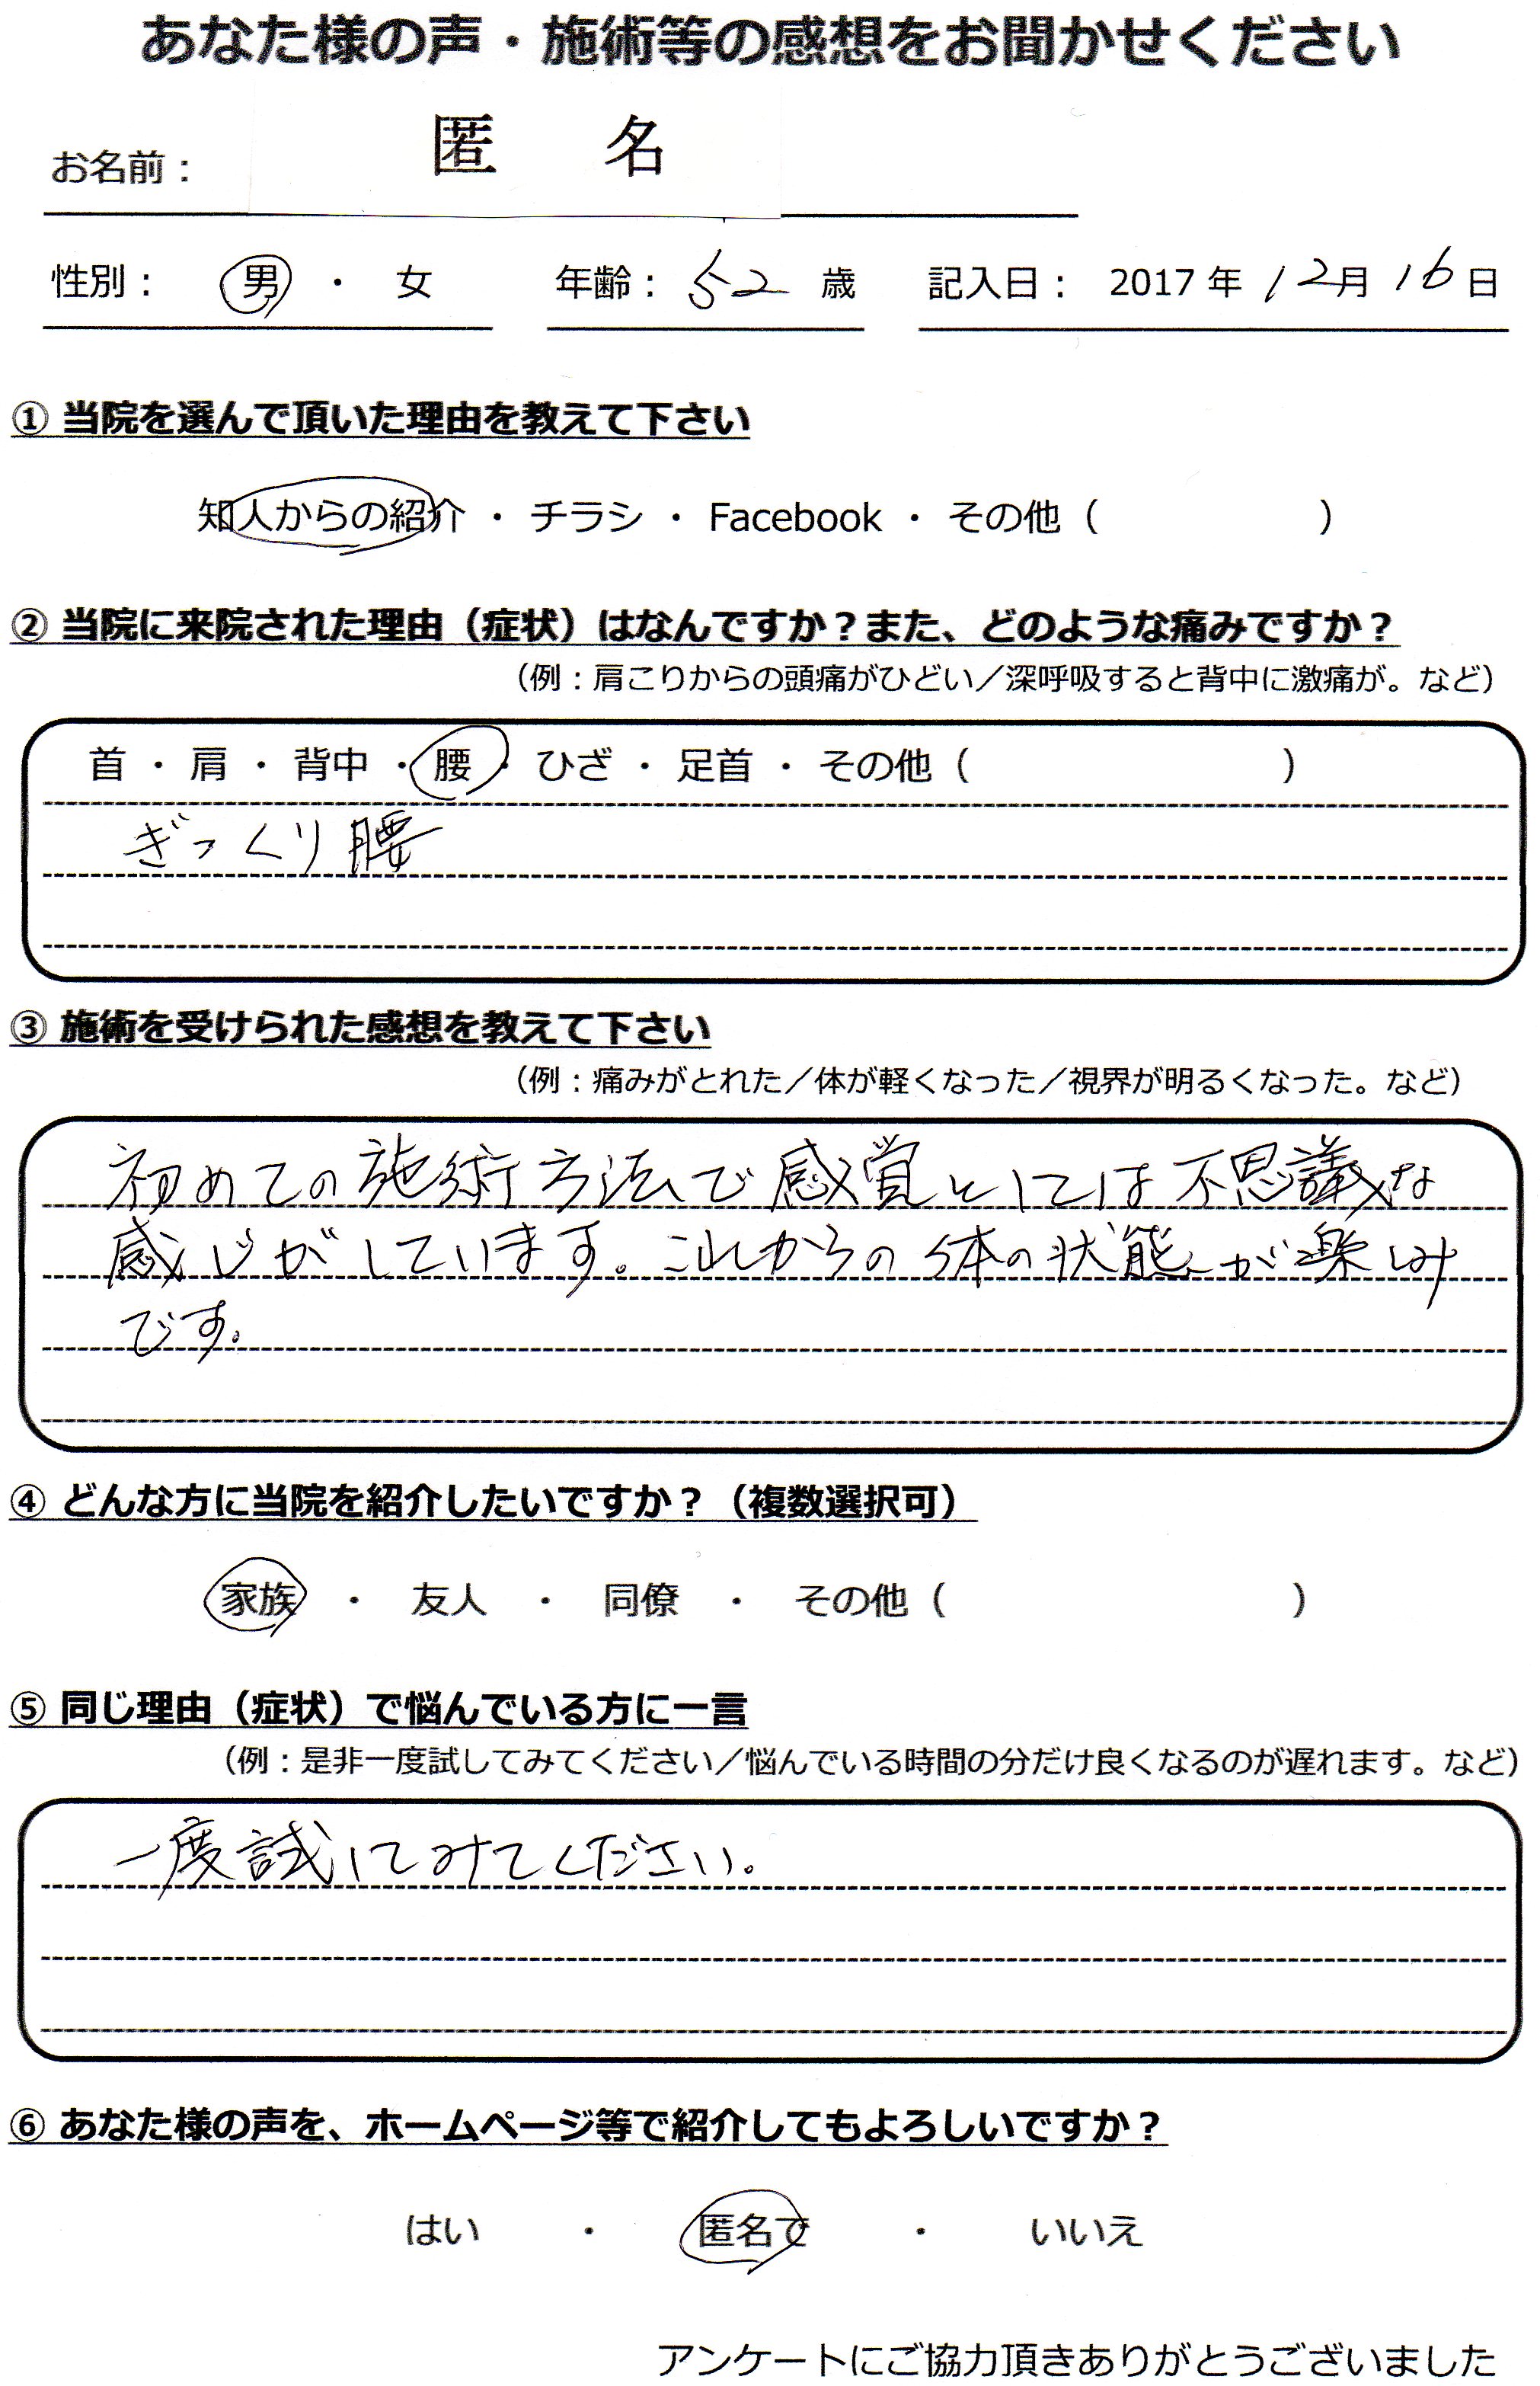 あなた様の声・施術等の感想をお聞かせください
お名前： 匿 名
性別： 男 ・ 女 年齢： 52 歳 記入日： 2017 年 12 月 16 日
① 当院を選んで頂いた理由を教えて下さい
知人からの紹介 ・ チラシ ・ Facebook ・ その他（ ）
② 当院に来院された理由（症状）はなんですか？また、どのような痛みですか？
（例：肩こりからの頭痛がひどい／深呼吸すると背中に激痛が。など）
首 ・ 肩 ・ 背中 ・ 腰 ・ ひざ ・ 足首 ・ その他（ ）
ぎっくり腰
③ 施術を受けられた感想を教えて下さい
（例：痛みがとれた／体が軽くなった／視界が明るくなった。など）
初めての施術方法で感覚としては不思議な
感じがしています。これからの体の状態が楽しみ
です。
④ どんな方に当院を紹介したいですか？（複数選択可）
家族 ・ 友人 ・ 同僚 ・ その他（ ）
⑤ 同じ理由（症状）で悩んでいる方に一言
（例：是非一度試してみてください／悩んでいる時間の分だけ良くなるのが遅れます。など）
一度試してみてください。
⑥ あなた様の声を、ホームページ等で紹介してもよろしいですか？
はい ・ 匿名で ・ いいえ
アンケートにご協力頂きありがとうございました